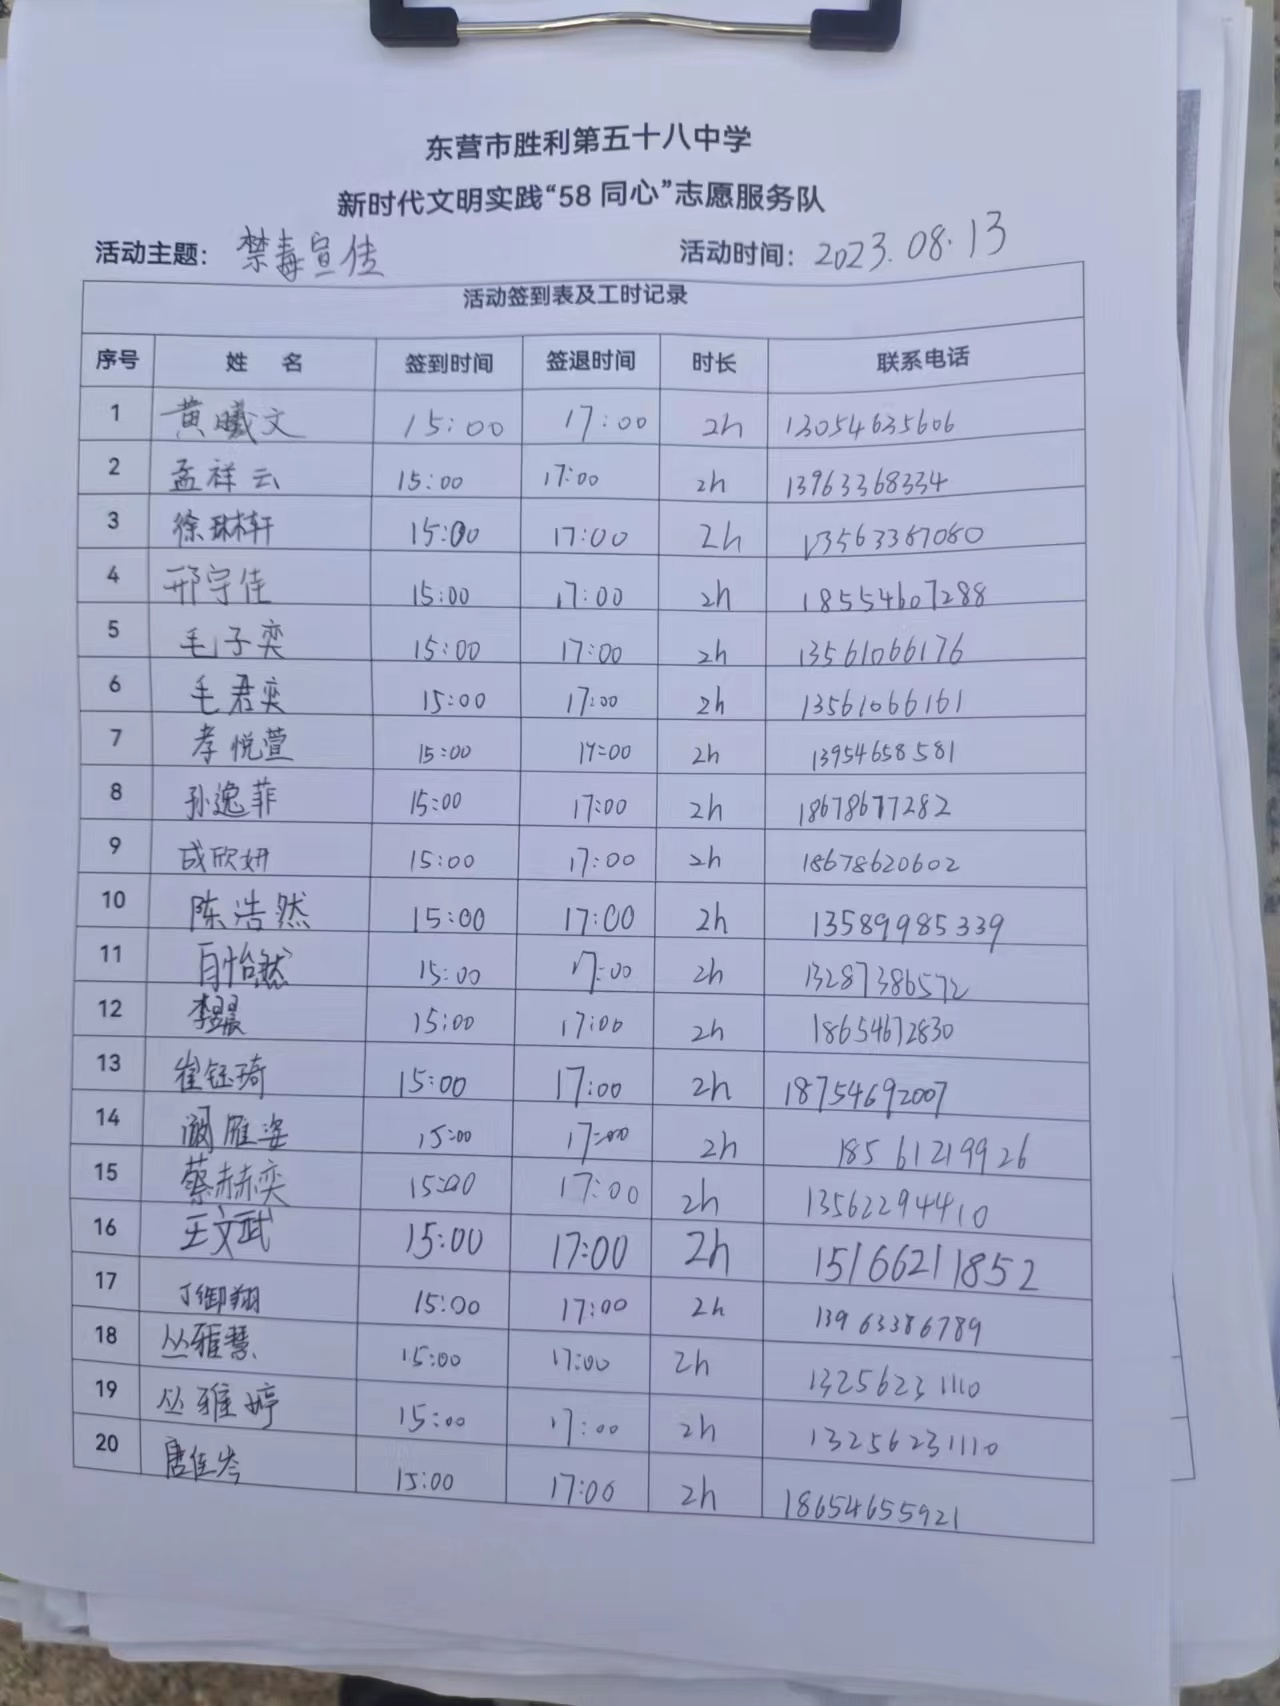 东营市胜利第五十八中学
新时代文明实践“58 同心”志愿服务队
活动主题: 禁毒宣传 活动时间: 2023.08.13
活动签到表及工时记录
序号 姓 名 签到时间 签退时间 时长 联系电话
1 黄曦文 15:00 17:00 2h 13054635606
2 孟祥云 15:00 17:00 2h 13963368334
3 徐琳轩 15:00 17:00 2h 13563387080
4 邢宇佳 15:00 17:00 2h 18554607288
5 毛子奕 15:00 17:00 2h 13561066176
6 毛君奕 15:00 17:00 2h 13561066161
7 李悦萱 15:00 17:00 2h 13954658581
8 孙逸菲 15:00 17:00 2h 18678677282
9 成欣妍 15:00 17:00 2h 18678620602
10 陈浩然 15:00 17:00 2h 13589985339
11 15:00 17:00 2h 13287386572
12 15:00 17:00 2h 18654672830
13 崔钰琦 15:00 17:00 2h 18754692007
14 阚雁姿 15:00 17:00 2h 18561219926
15 蔡赫奕 15:00 17:00 2h 13562294410
16 王文武 15:00 17:00 2h 15166211852
17 丁御翔 15:00 17:00 2h 13963386789
18 丛雅慧 15:00 17:00 2h 13256231110
19 丛雅婷 15:00 17:00 2h 13256231110
20 唐佳岑 15:00 17:00 2h 18654655921